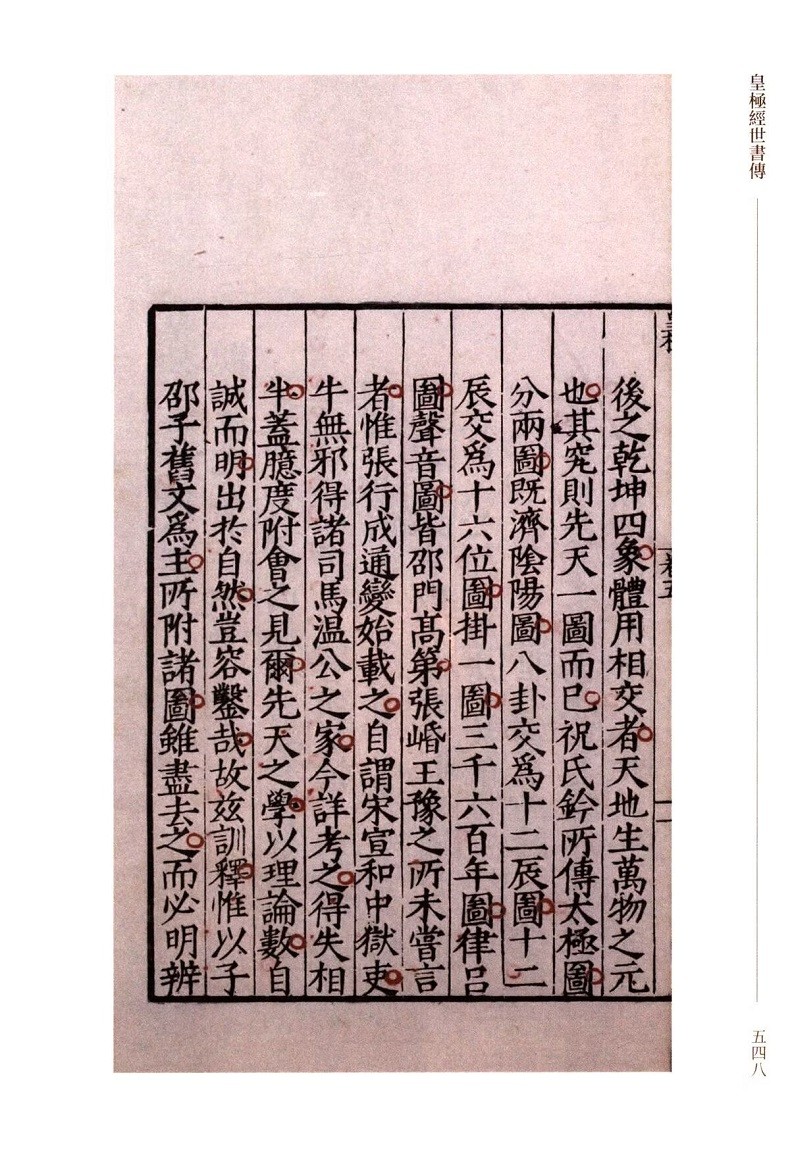 皇極經世書傳
後之乾坤四象體用相交者天地生萬物之元
也其究則先天一圖而已祝氏鈐所傳太極圖
分兩圖既濟陰陽圖八卦交爲十二辰圖十二
辰交爲十六位圖掛一圖三千六百年圖律呂
圖聲音圖皆邵門高第張㟭王豫之所未嘗言
者惟張行成通變始載之自謂宋宣和中獄吏
牛無邪得諸司馬温公之家今詳考之得失相
半蓋臆度附會之見爾先天之學以理論數自
誠而明出於自然豈容鑿哉故兹訓釋惟以子
邵子舊文爲主所附諸圖雖盡去之而必明辨
五四八